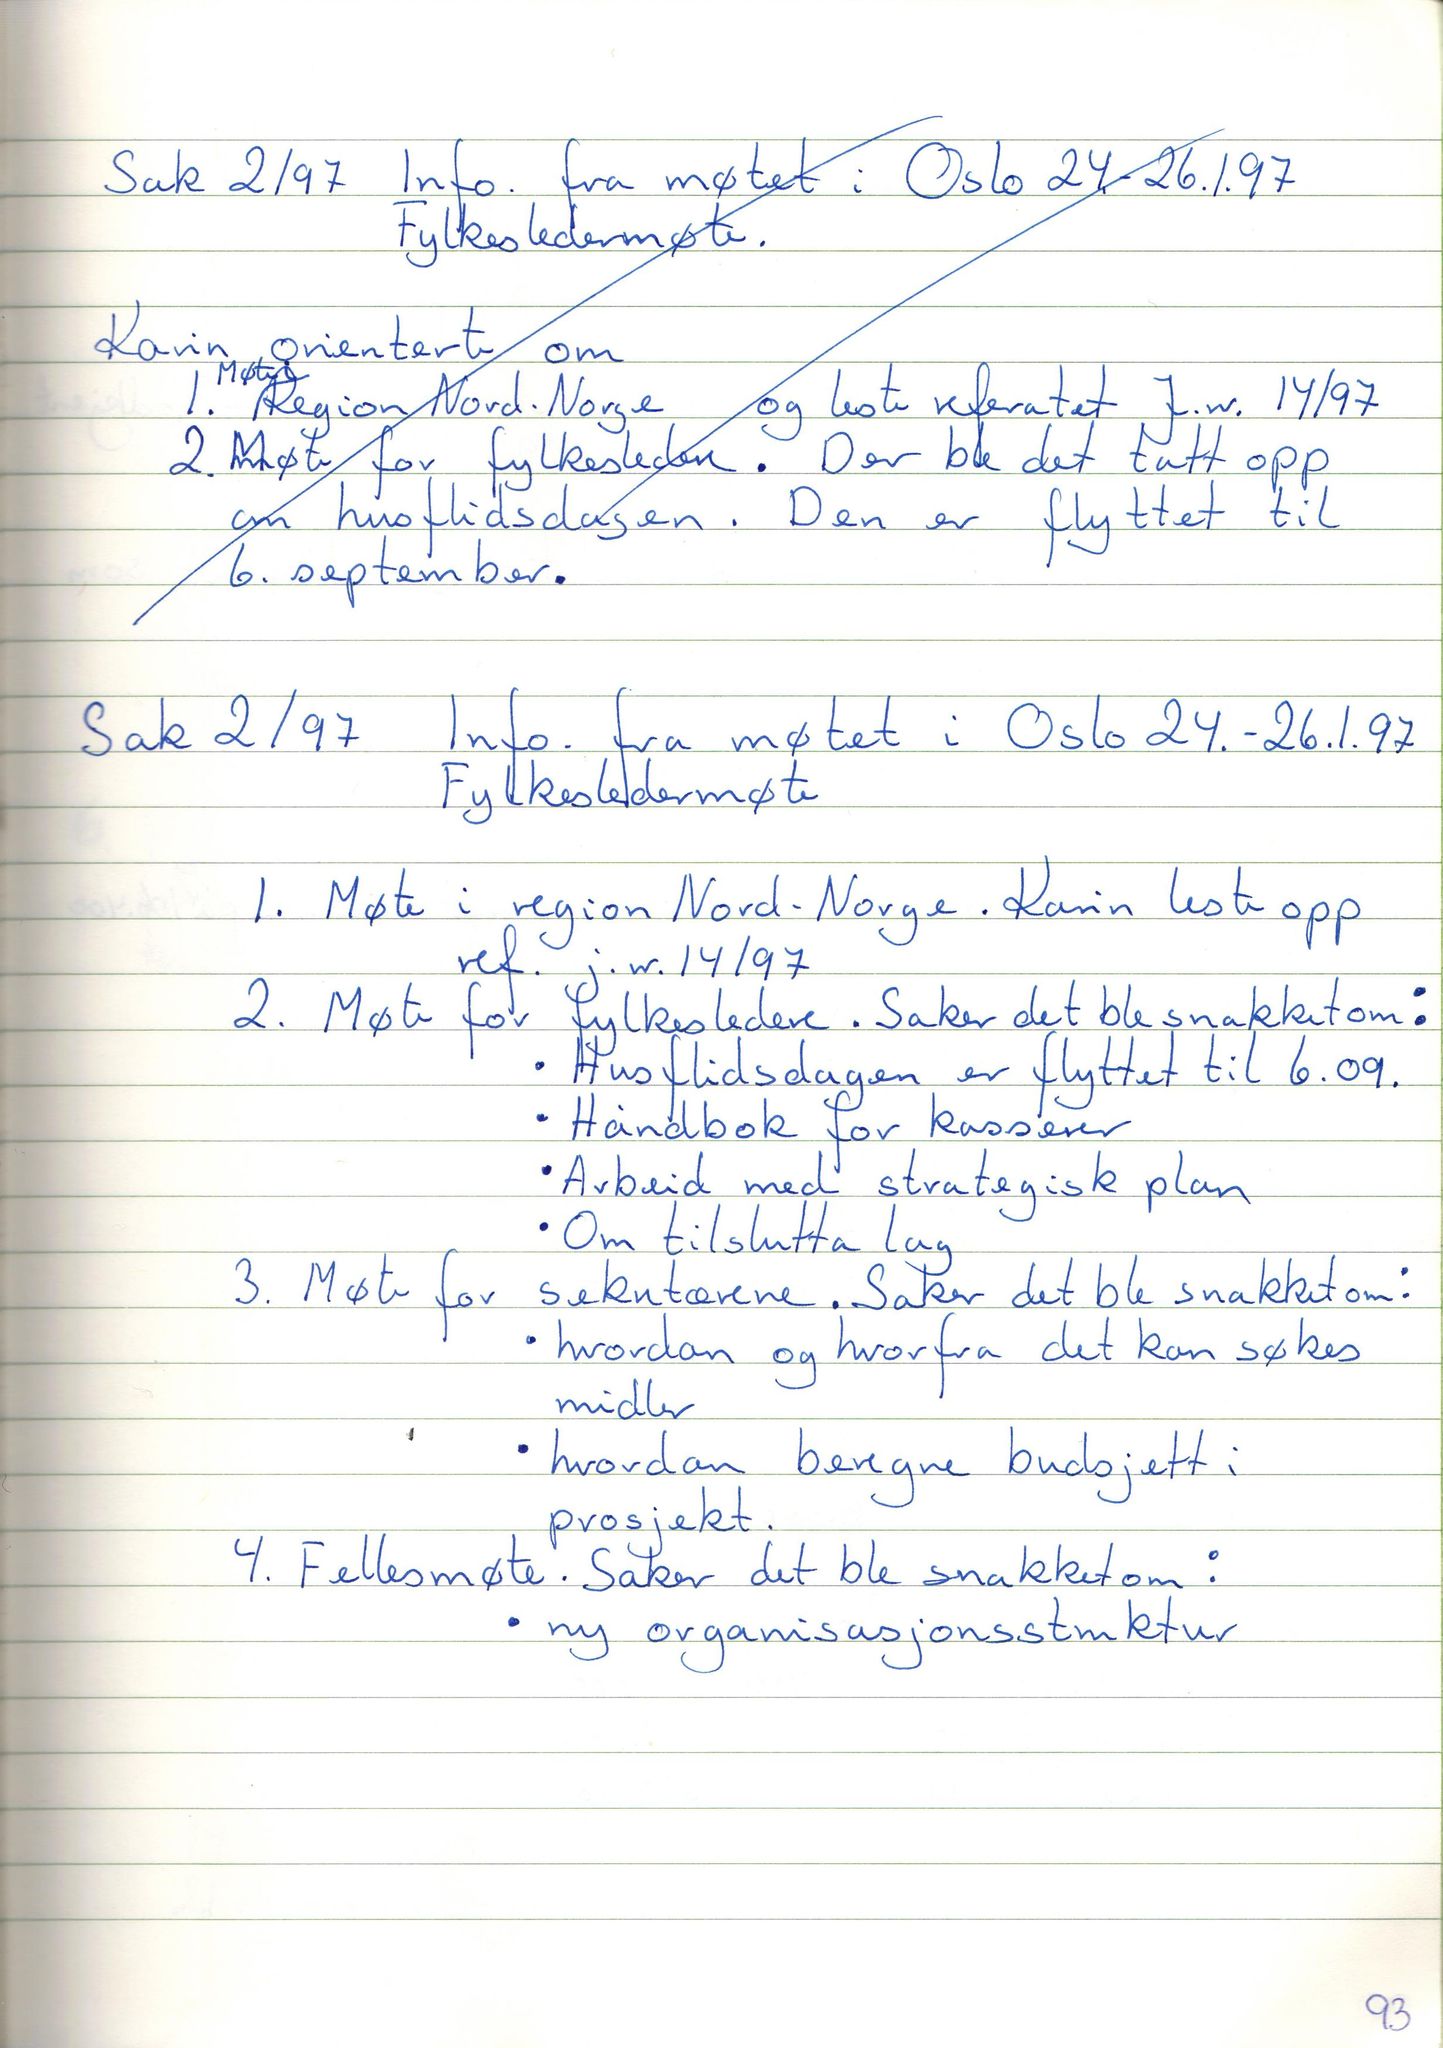 Sak 2/97 Info. fra møtet i Oslo 24.-26.1.97
Fylkesledermøte.
Karin orienterte om
Møte i
1. Region Nord-Norge og leste referatet J.nr. 14/97
2. Møte for fylkesledere. Der ble det tatt opp
om husflidsdagen. Den er flyttet til
6. september.
Sak 2/97 Info. fra møtet i Oslo 24.-26.1.97
Fylkesledermøte
1. Møte i region Nord-Norge. Karin leste opp
ref. j.nr. 14/97
2. Møte for fylkesledere. Saker det ble snakket om:
• Husflidsdagen er flyttet til 6.09.
• Håndbok for kasserer
• Arbeid med strategisk plan
• Om tilslutta lag
3. Møte for sekretærene. Saker det ble snakket om:
• hvordan og hvorfra det kan søkes
midler
• hvordan beregne budsjett i
prosjekt.
4. Fellesmøte. Saker det ble snakket om:
• ny organisasjonsstruktur
93